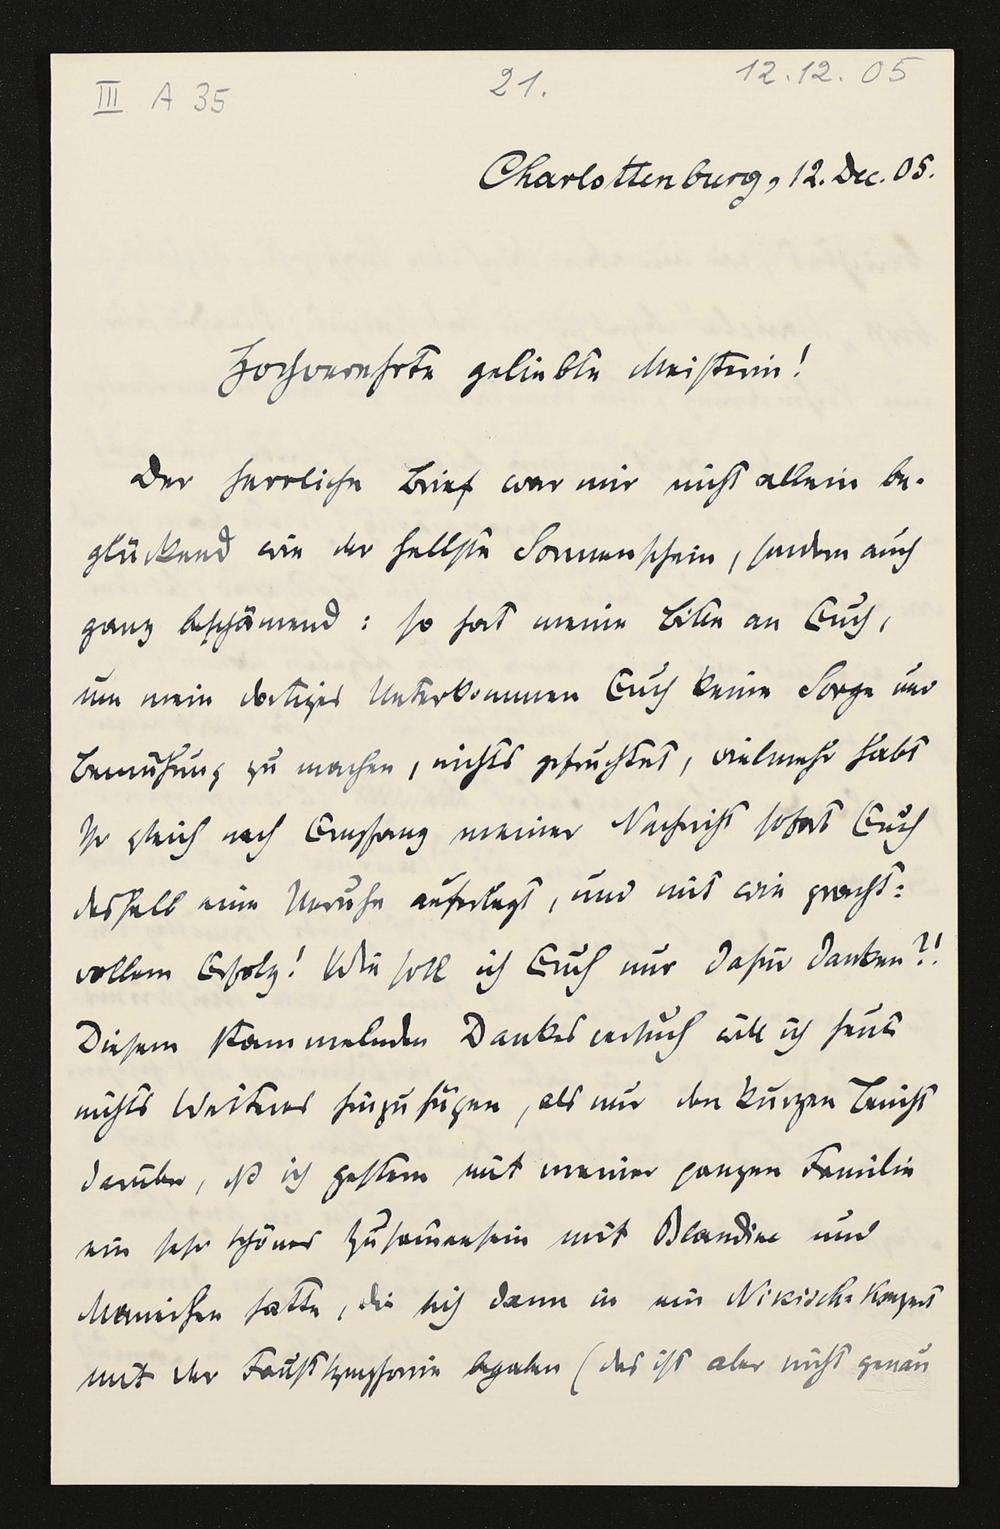 III A 35
21.
12.12.05
Charlottenburg, 12. Dec. 05.
Hochverehrte geliebte Meisterin!
Der herrliche Brief war mir nicht allein be-
glückend wie der hellste Sonnenschein, sondern auch
ganz beschämend: so hat meine Bitte an Euch,
um mein dortiges Unterkommen Euch keine Sorge und
Bemühung zu machen, nichts gefruchtet, vielmehr habt
Ihr gleich nach Empfang meiner Nachricht sofort Euch
deshalb eine Unruhe auferlegt, und mit wie pracht-
vollem Erfolg! Wie soll ich Euch nur dafür danken?!
Diesem stammelnden Dankesversuch will ich heut
nichts Weiteres hinzufügen, als nur den kurzen Bericht
darüber, dß ich gestern mit meiner ganzen Familie
ein sehr schönes Zusamensein mit Blandine und
Manichen hatte, die sich dann in ein Nikisch-Konzert
mit der Faustsymphonie begaben (das ist aber nicht genau